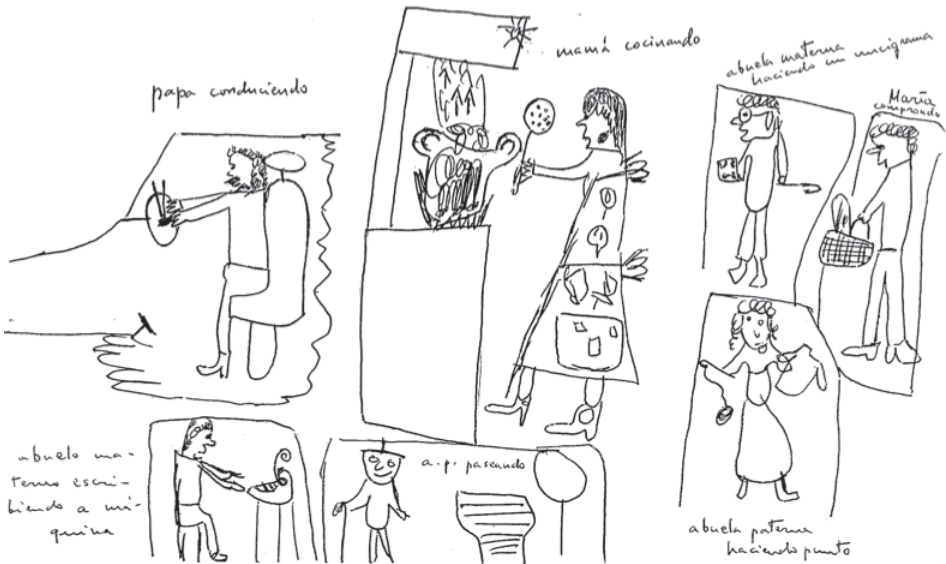 papa conduciendo
mamá cocinando
abuela materna
haciendo un crucigrama
María
comprando
abuelo ma-
terno escri-
biendo a má-
quina
a.p. paseando
abuela paterna
haciendo punto